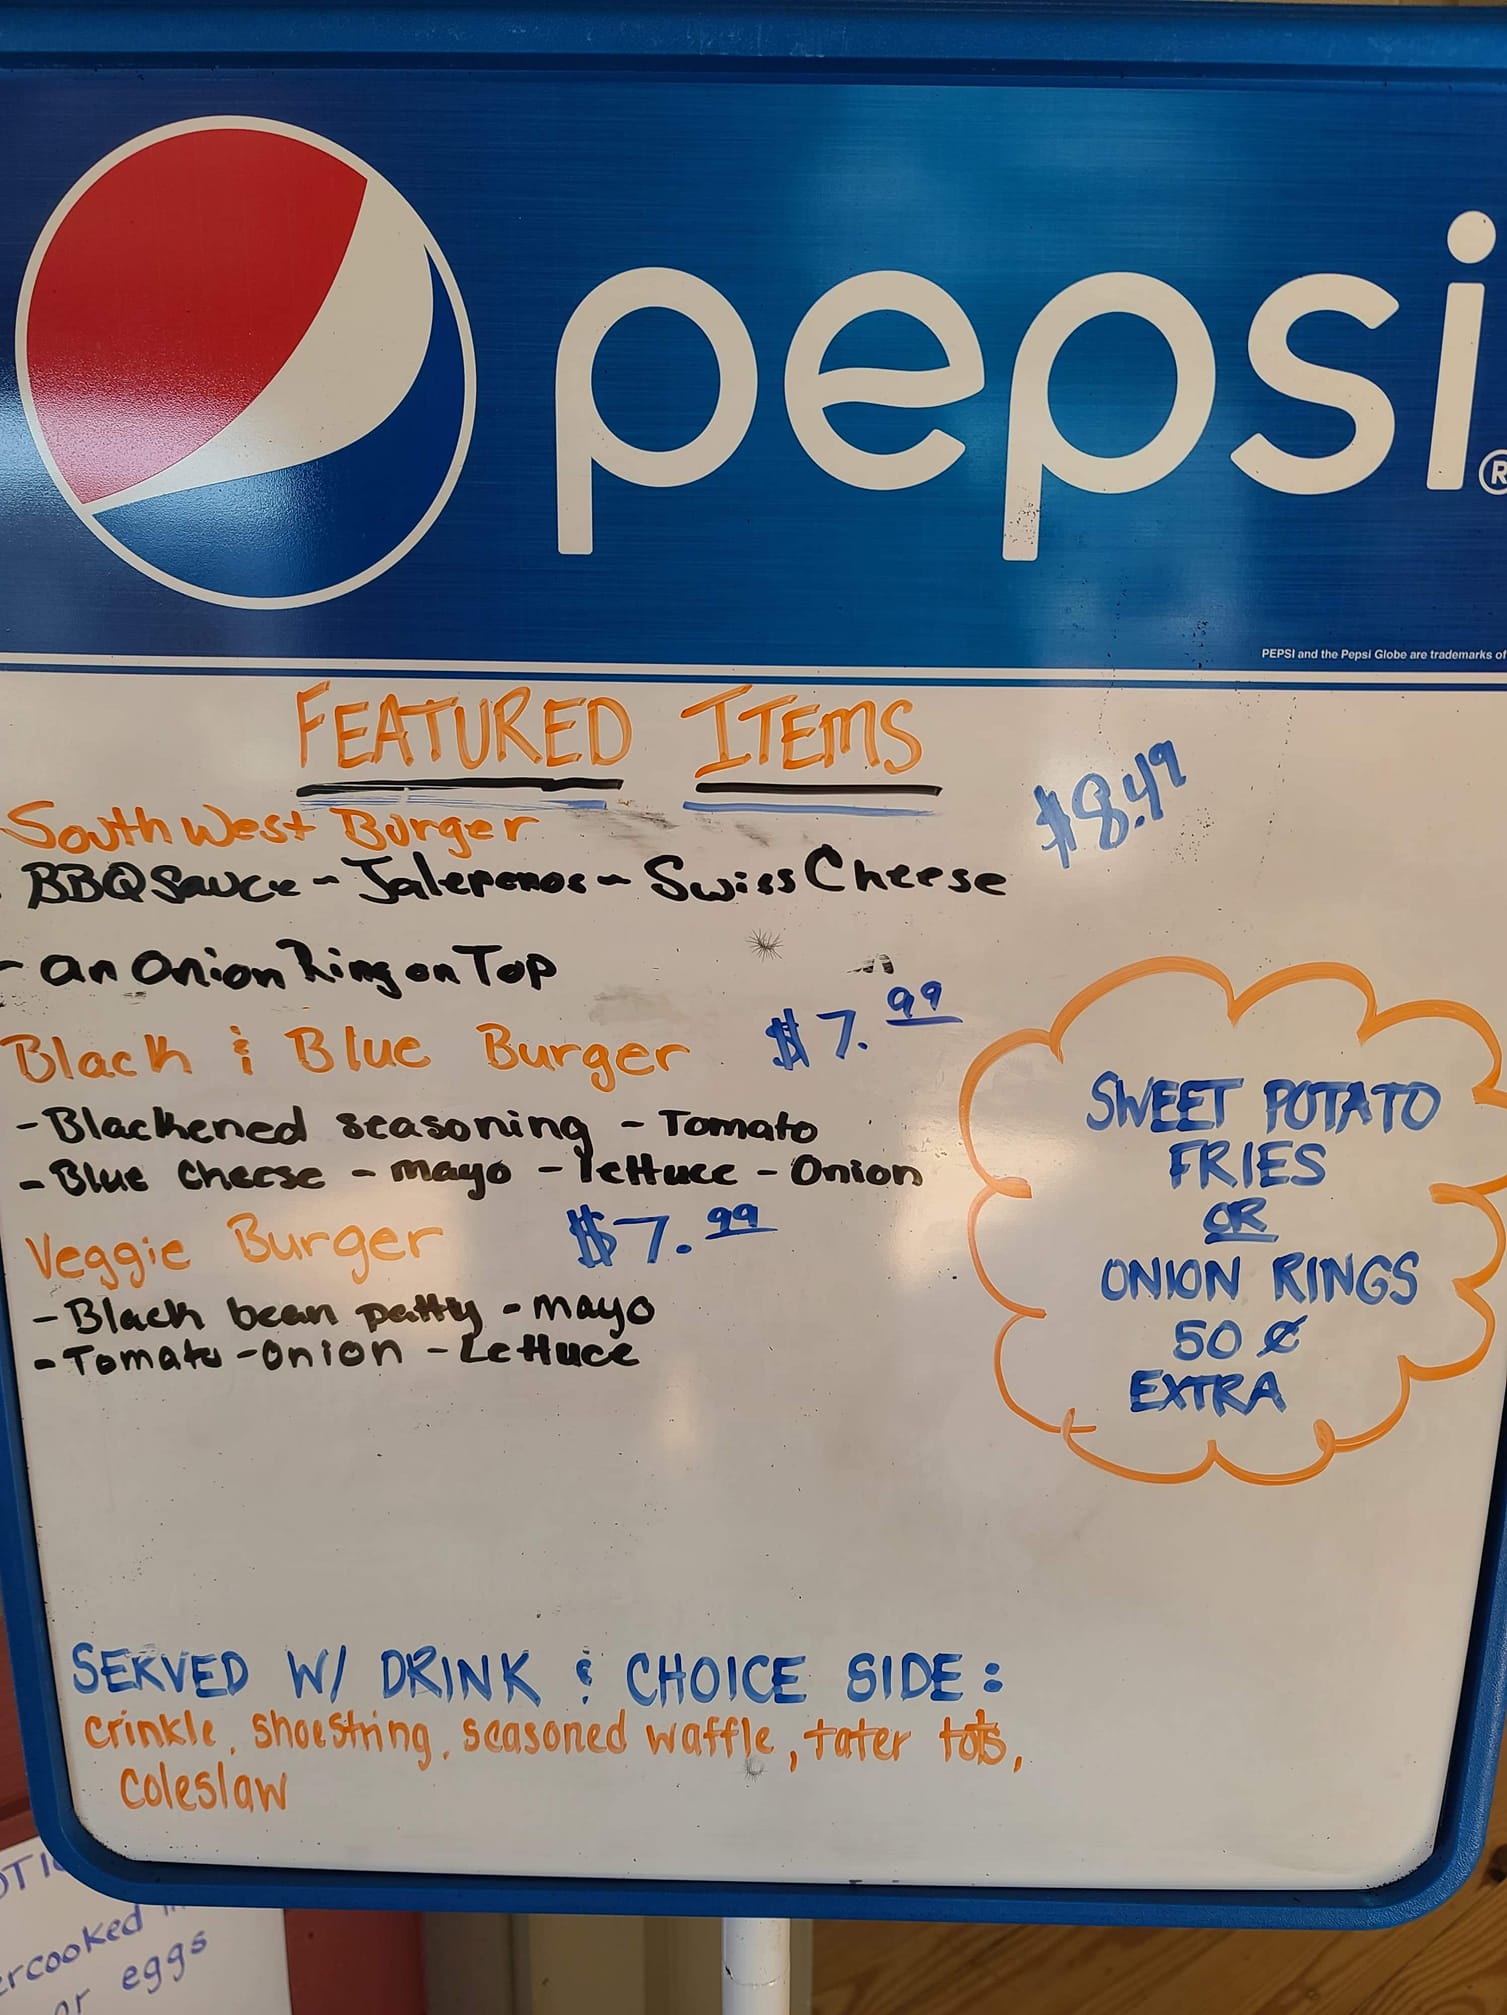 pepsi
®
PEPSI and the Pepsi Globe are trademarks of
FEATURED ITEMS
SouthWest Burger $8.49
BBQ Sauce - Jalepenos - Swiss Cheese
- an onion Ring on Top
Black & Blue Burger $7.99
- Blackened seasoning - Tomato
- Blue Cheese - mayo - lettuce - Onion
Veggie Burger $7.99
- Black bean patty - mayo
- Tomato - onion - Lettuce
SWEET POTATO
FRIES
OR
ONION RINGS
50 ¢
EXTRA
SERVED W/ DRINK & CHOICE SIDE:
crinkle, shoestring, seasoned waffle, tater tots,
coleslaw
eggs